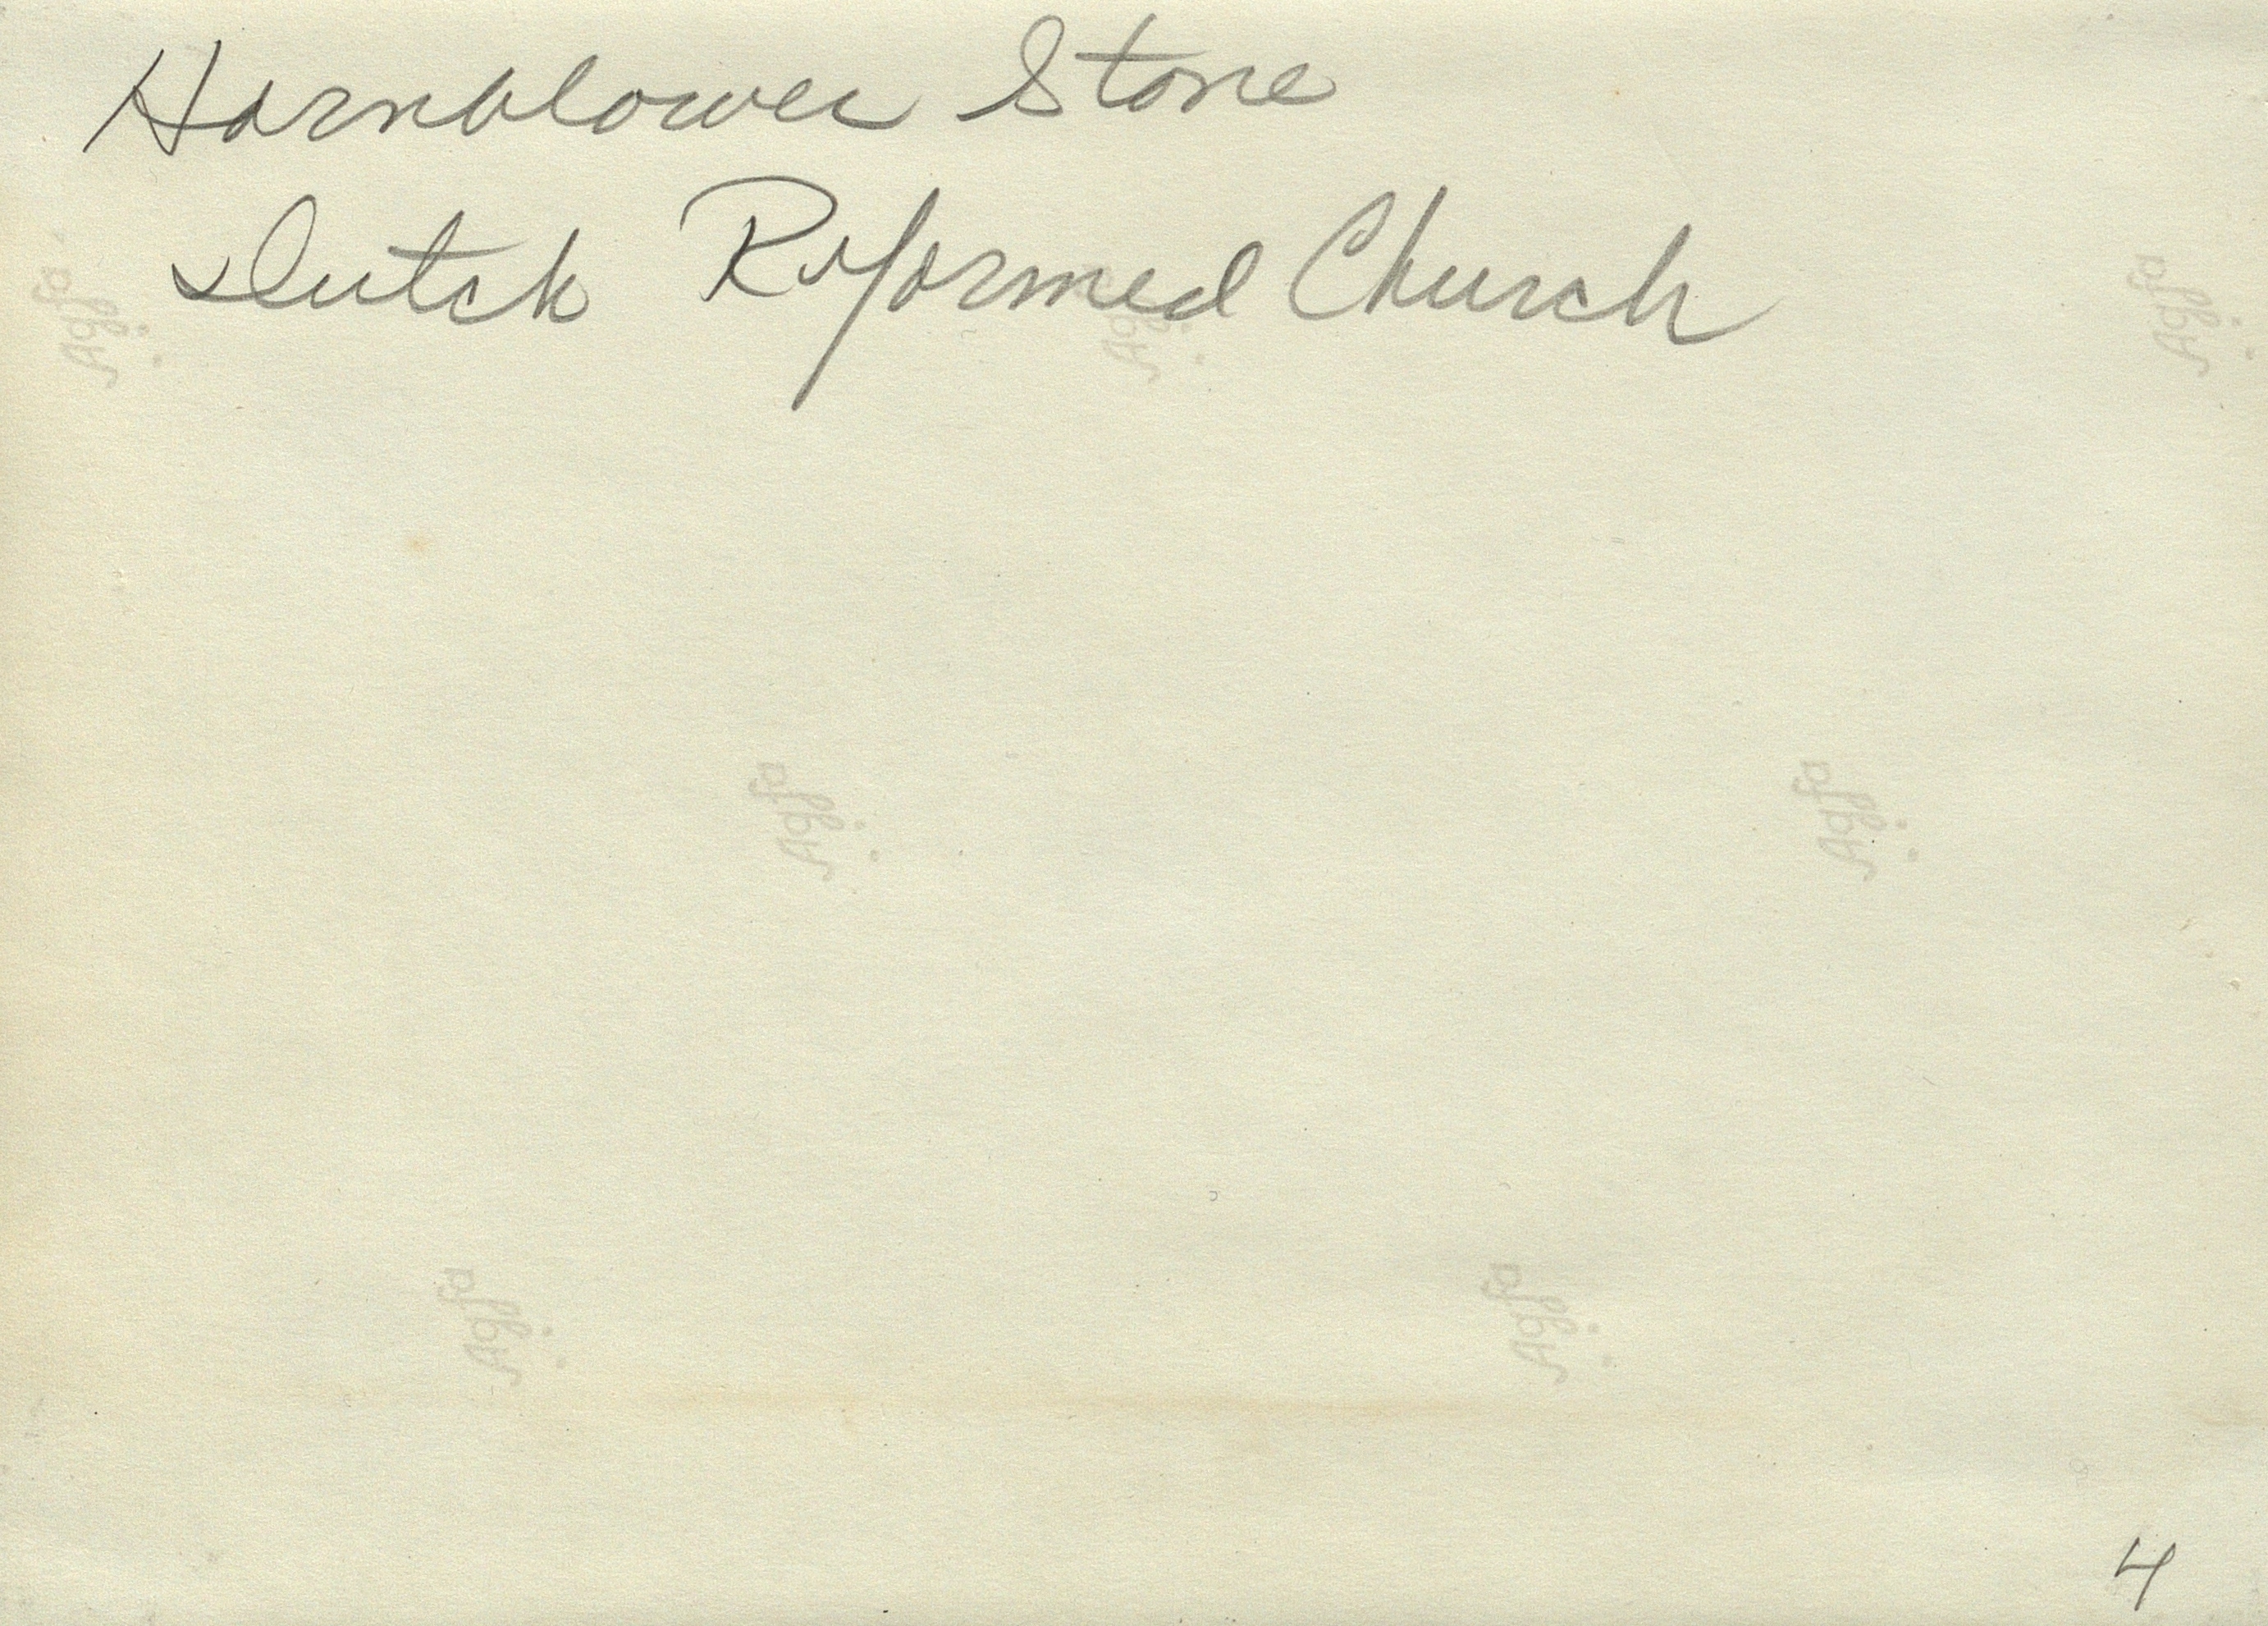 Hornblower Stone
Dutch Reformed Church
Agfa
Agfa
Agfa
Agfa
Agfa
Agfa
Agfa
4